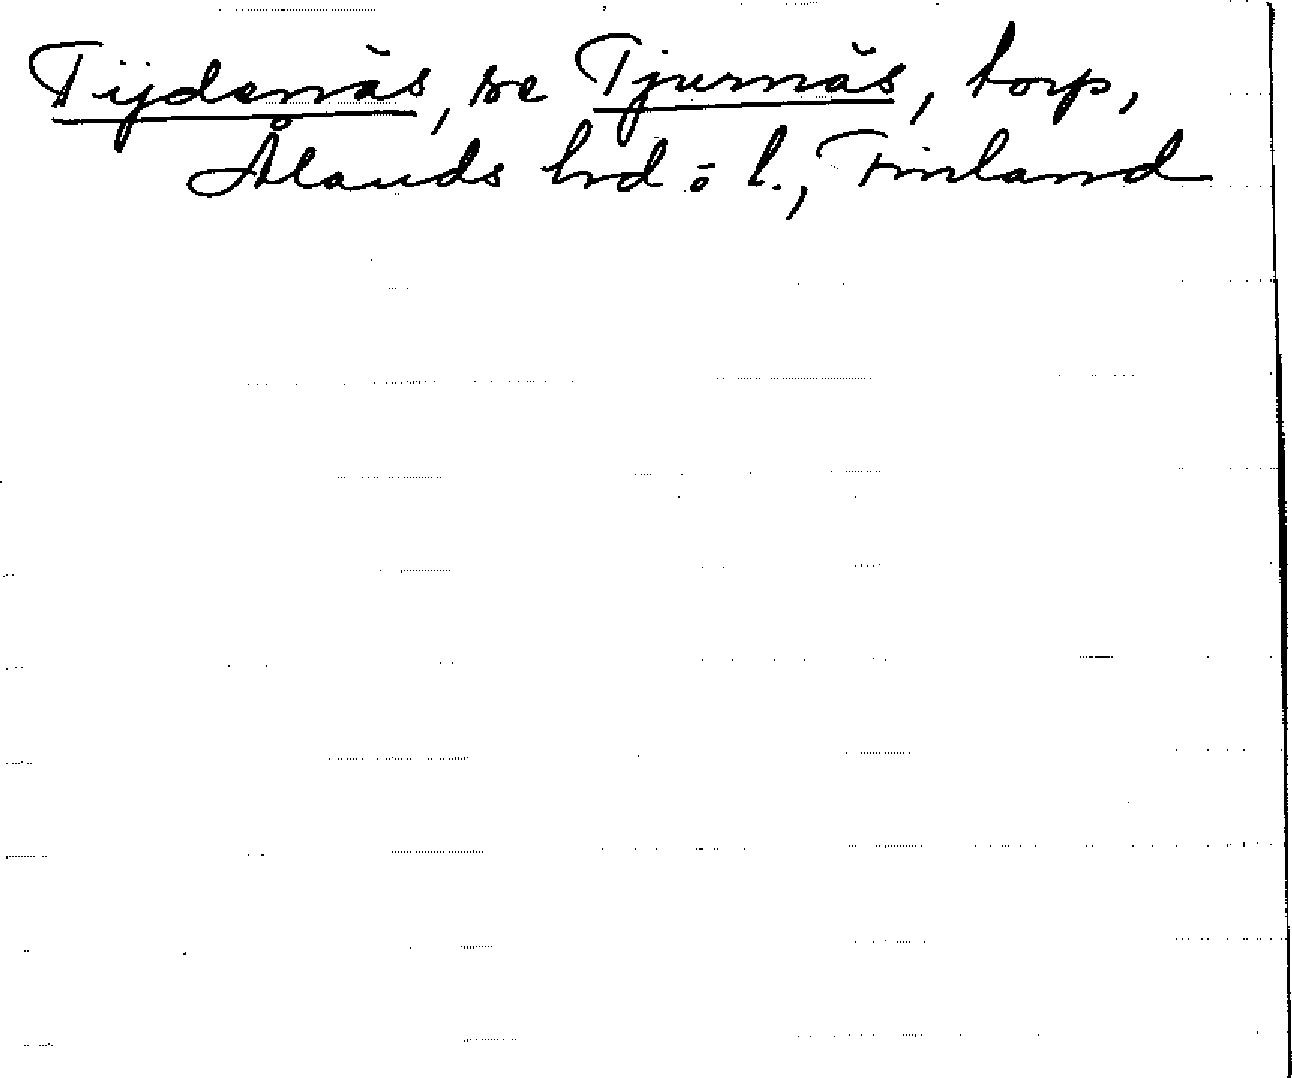 Tijdernäs, se Tjurnäs, torp,
Ålands hrd o l., Finland